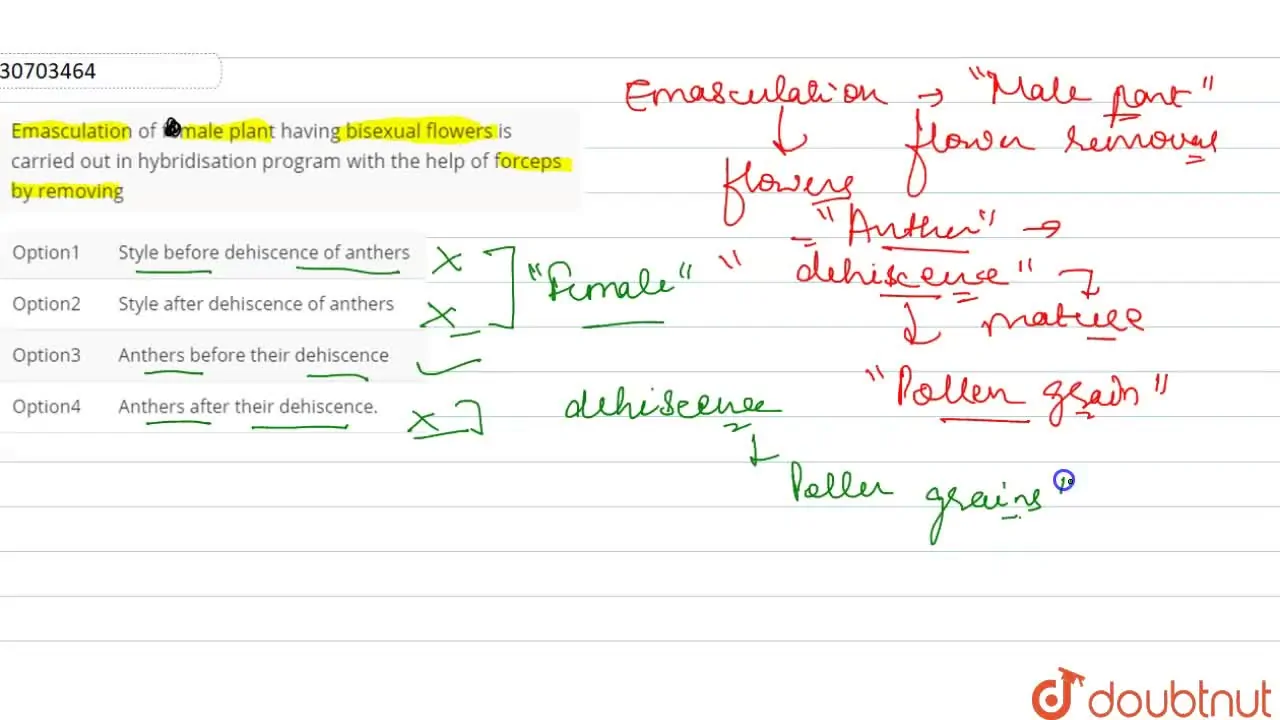 30703464
Emasculation of female plant having bisexual flowers is
carried out in hybridisation program with the help of forceps
by removing
Option1 Style before dehiscence of anthers
Option2 Style after dehiscence of anthers
Option3 Anthers before their dehiscence
Option4 Anthers after their dehiscence.
X
X
X
"Female"
Emasculation → "Male part"
flower removes
flowers
"Anther" →
" dehiscence "
mature
"Pollen grain"
dehiscence
Pollen grains "
doubtnut